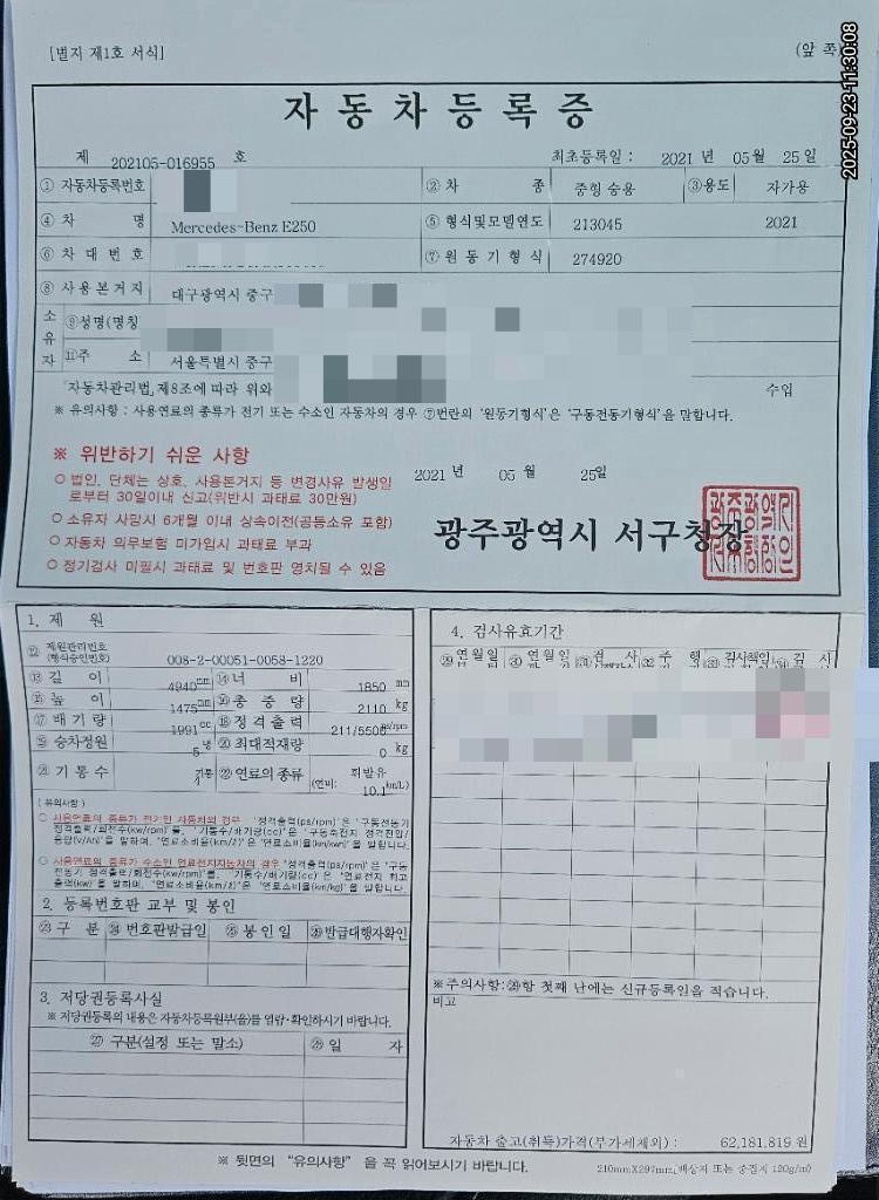 [별지 제1호 서식]
(앞 쪽)
2025-09-23 11:30:08
자동차등록증
제 202105-016955 호
최초등록일 : 2021 년 05월 25일
① 자동차등록번호
② 차 종 중형 승용
③용도 자가용
④ 차 명 Mercedes-Benz E250
⑤ 형식및모델연도 213045 2021
⑥ 차 대 번 호
⑦ 원 동 기 형 식 274920
⑧ 사 용 본 거 지 대구광역시 중구
소유자
⑨성명(명칭
⑪주 소 서울특별시 중구
「자동차관리법」제8조에 따라 위와
수입
※ 유의사항 : 사용연료의 종류가 전기 또는 수소인 자동차의 경우 ⑦번란의 '원동기형식'은 '구동전동기형식'을 말합니다.
※ 위반하기 쉬운 사항
○ 법인, 단체는 상호, 사용본거지 등 변경사유 발생일
로부터 30일이내 신고(위반시 과태료 30만원)
○ 소유자 사망시 6개월 이내 상속이전(공동소유 포함)
○ 자동차 의무보험 미가입시 과태료 부과
○ 정기검사 미필시 과태료 및 번호판 영치될 수 있음
2021 년 05 월 25일
광주광역시 서구청장
1. 제 원
⑫ 제원관리번호
(형식승인번호)
008-2-00051-0058-1220
⑬ 길 이 4940mm
⑭ 너 비 1850 mm
⑮ 높 이 1475mm
⑯ 총 중 량 2110 kg
⑰ 배 기 량 1991cc
⑱ 정 격 출 력 211/5500ps/rpm
⑲ 승차정원 5 명
⑳ 최대적재량 0 kg
㉑ 기 통 수 4 기통
㉒ 연료의 종류 휘발유
(연비: 10.1km/L)
[유의사항]
○ 사용연료의 종류가 전기인 자동차의 경우 '정격출력(ps/rpm)'은 '구동전동기
정격출력/회전수(kw/rpm)'를, '기통수/배기량(cc)'은 '구동축전지 정격전압/
용량(v/Ah)'을 말하며, '연료소비율(km/ℓ)'은 '연료소비율(km/kwh)'을 말합니다.
○ 사용연료의 종류가 수소인 연료전지자동차의 경우 "정격출력(ps/rpm)"은 "구동
전동기 정격출력/회전수(kw/rpm)"를, "기통수/배기량(cc)"은 "연료전지 최고
출력(kw)"을 말하며, "연료소비율(km/ℓ)"은 "연료소비율(km/kg)"을 말합니다.
2. 등록번호판 교부 및 봉인
㉓ 구 분 ㉔ 번호판발급일 ㉕ 봉 인 일 ㉖발급대행자확인
3. 저당권등록사실
※ 저당권등록의 내용은 자동차등록원부(을)를 열람·확인하시기 바랍니다.
㉗ 구분(설정 또는 말소) ㉘ 일 자
4. 검사유효기간
㉙ 연월일 ㉚ 연월일 ㉛ 검 사 ㉜ 주 행 ㉝ 검사책임 ㉞ 검 사
※주의사항:㉙항 첫째 난에는 신규등록일을 적습니다.
비고
자동차 출고(취득)가격(부가세제외) : 62,181,819 원
※ 뒷면의 "유의사항" 을 꼭 읽어보시기 바랍니다.
210mm×297mm[백상지 또는 중질지 120g/㎡]